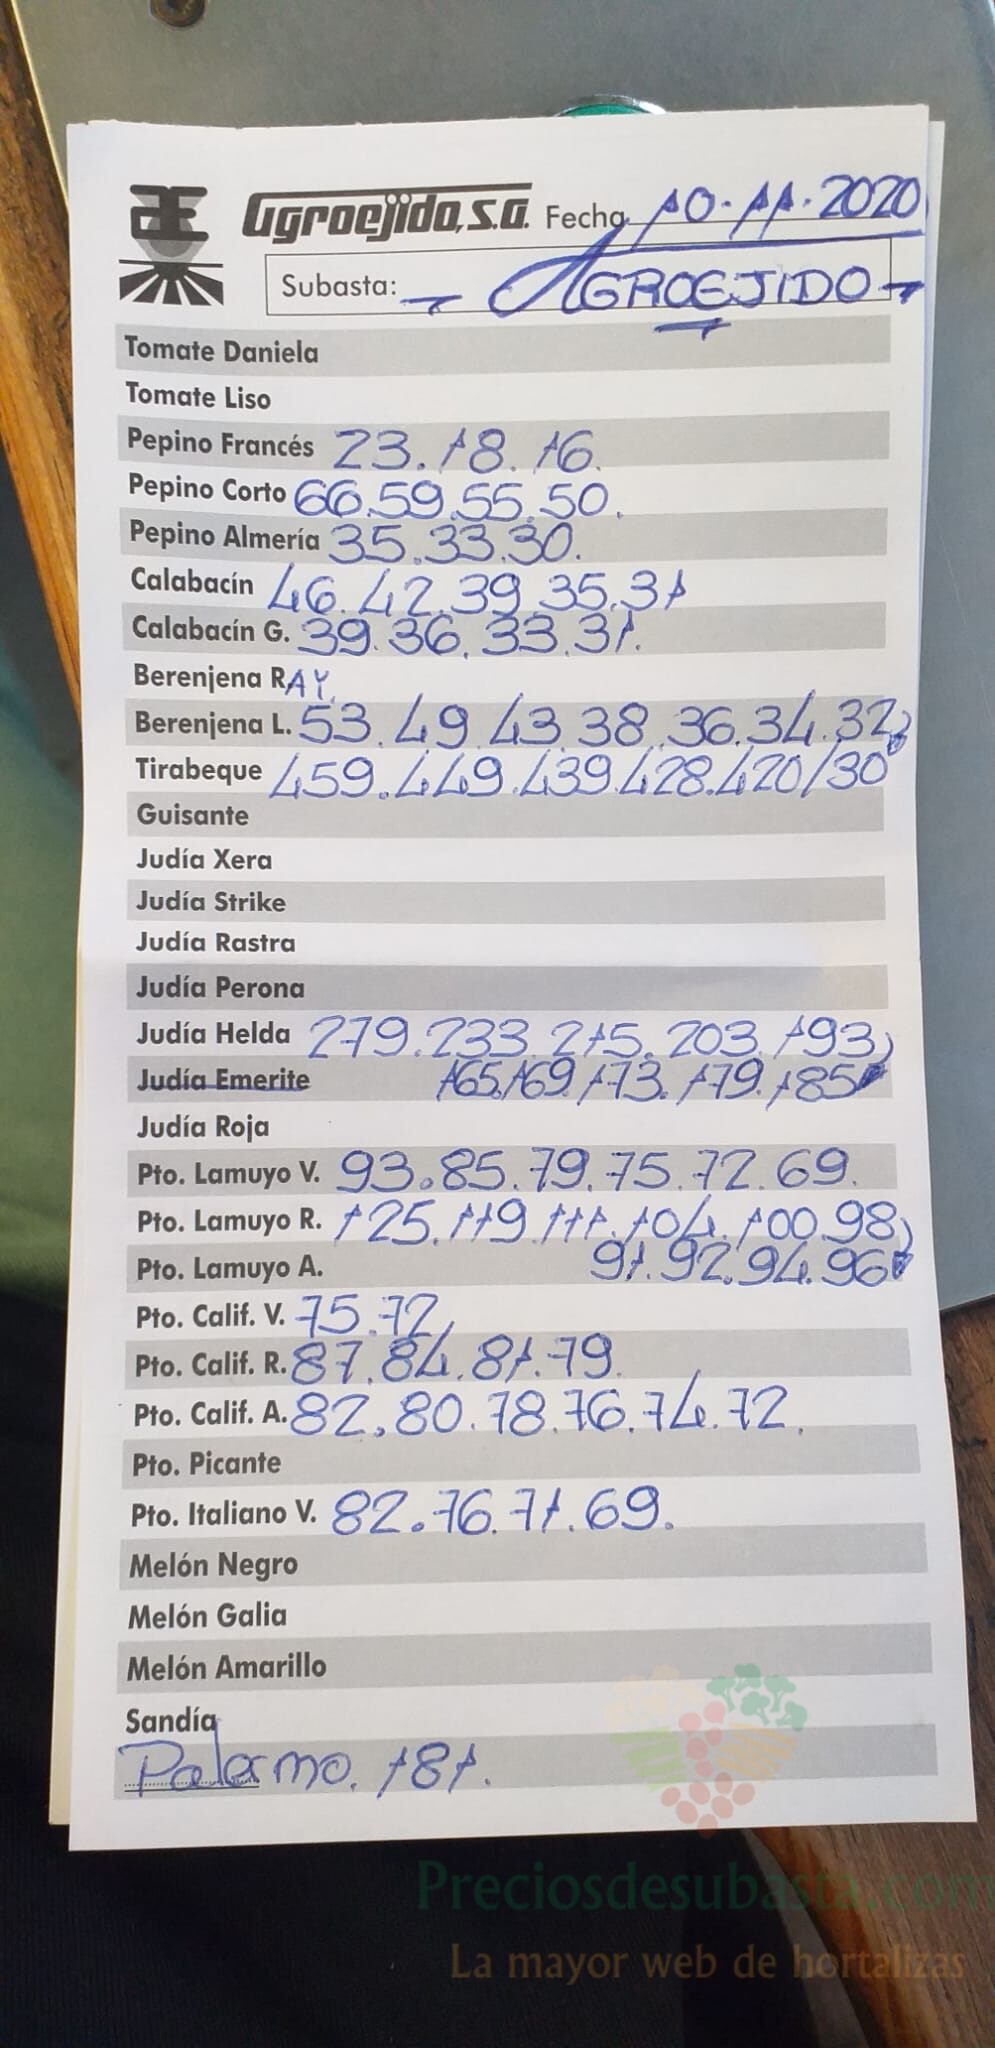 Agroejido, S.A. Fecha 10-11-2020
Subasta: - AGROEJIDO -
Tomate Daniela
Tomate Liso
Pepino Francés 23. 18. 16.
Pepino Corto 66.59.55.50.
Pepino Almería 35.33.30.
Calabacín 46.42.39.35.31
Calabacín G. 39.36.33.31.
Berenjena RAY
Berenjena L. 53.49.43.38.36.34.32
Tirabeque 459.449.439.428.420/30
Guisante
Judía Xera
Judía Strike
Judía Rastra
Judía Perona
Judía Helda 279.233.215.203.193
Judía Emerite 165.169.173.179.185
Judía Roja
Pto. Lamuyo V. 93.85.79.75.72.69.
Pto. Lamuyo R. 125.119.111.104.100.98
Pto. Lamuyo A. 91.92.94.96
Pto. Calif. V. 75.72
Pto. Calif. R. 87.84.81.79.
Pto. Calif. A. 82.80.78.76.74.72.
Pto. Picante
Pto. Italiano V. 82.76.71.69.
Melón Negro
Melón Galia
Melón Amarillo
Sandía
Palermo. 181.
Preciosdesubasta.com
La mayor web de hortalizas